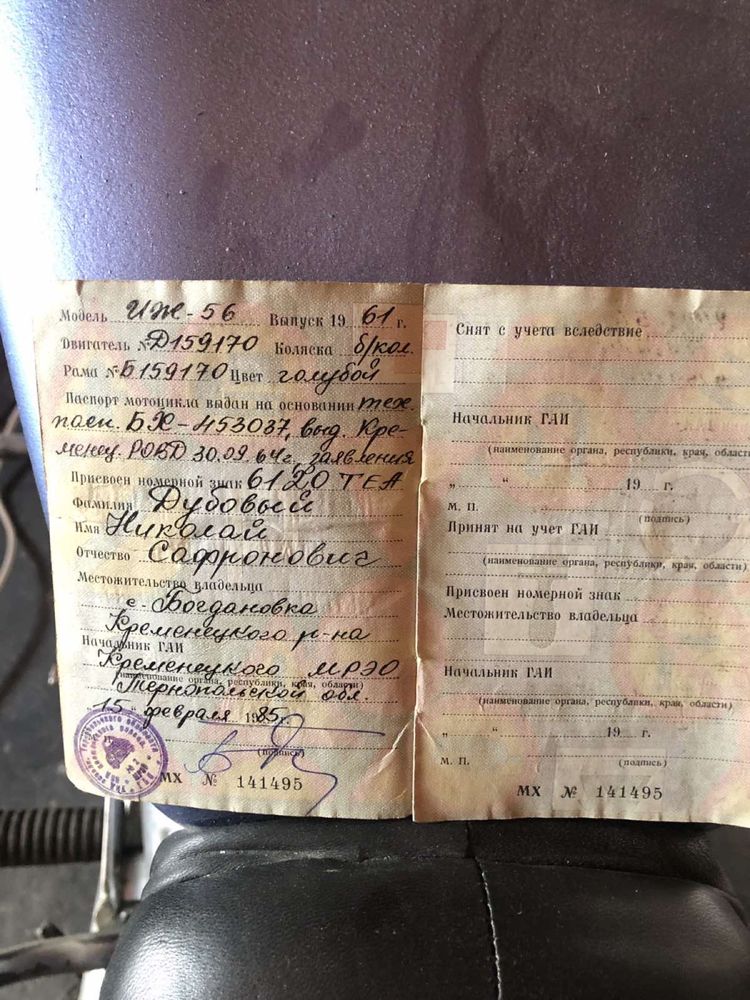 Модель ИЖ-56 Выпуск 19 61 г.
Двигатель № Д159170 Коляска б/кол.
Рама № Б159170 Цвет голубой
Паспорт мотоцикла выдан на основании тех.
пасп. БХ-453037, выд. Кре-
менец. РОВД 30.09.64г., заявления
Присвоен номерной знак 6120 ТЕА
Фамилия Дубовый
Имя Николай
Отчество Сафронович
Местожительство владельца
с. Богдановка
Кременецкого р-на
Начальник ГАИ
Кременецкого МРЭО
(наименование органа, республики, края, области)
Тернопольской обл.
15 февраля 1985г.
(подпись)
МХ № 141495
Снят с учета вследствие
Начальник ГАИ
(наименование органа, республики, края, област
„ “ 19 г.
М. П.
(подпись)
Принят на учет ГАИ
(наименование органа, республики, края, области)
Присвоен номерной знак
Местожительство владельца
Начальник ГАИ
(наименование органа, республики, края, области)
„ “ 19 г.
М. П.
(подпись)
МХ № 141495